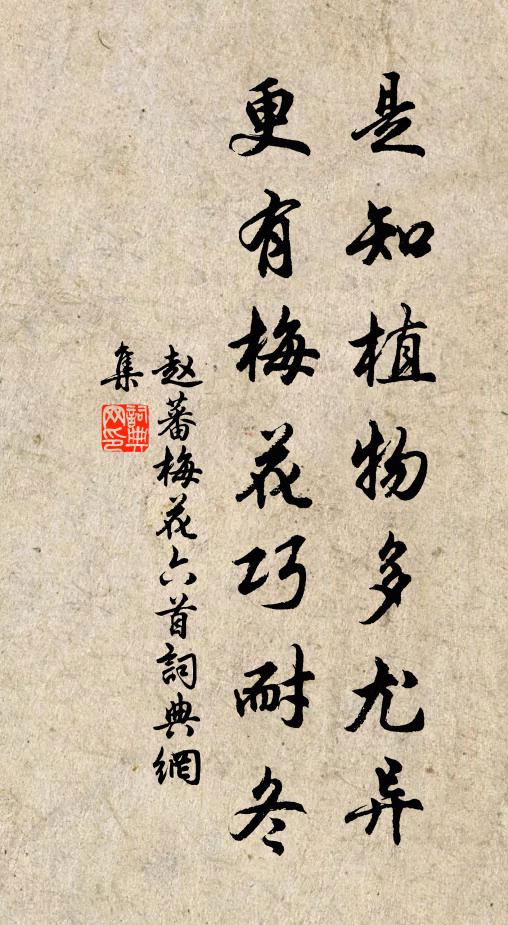 是知植物多尤异
更有梅花巧耐冬
赵蕃梅花六首詞典網
集
詞典
网印